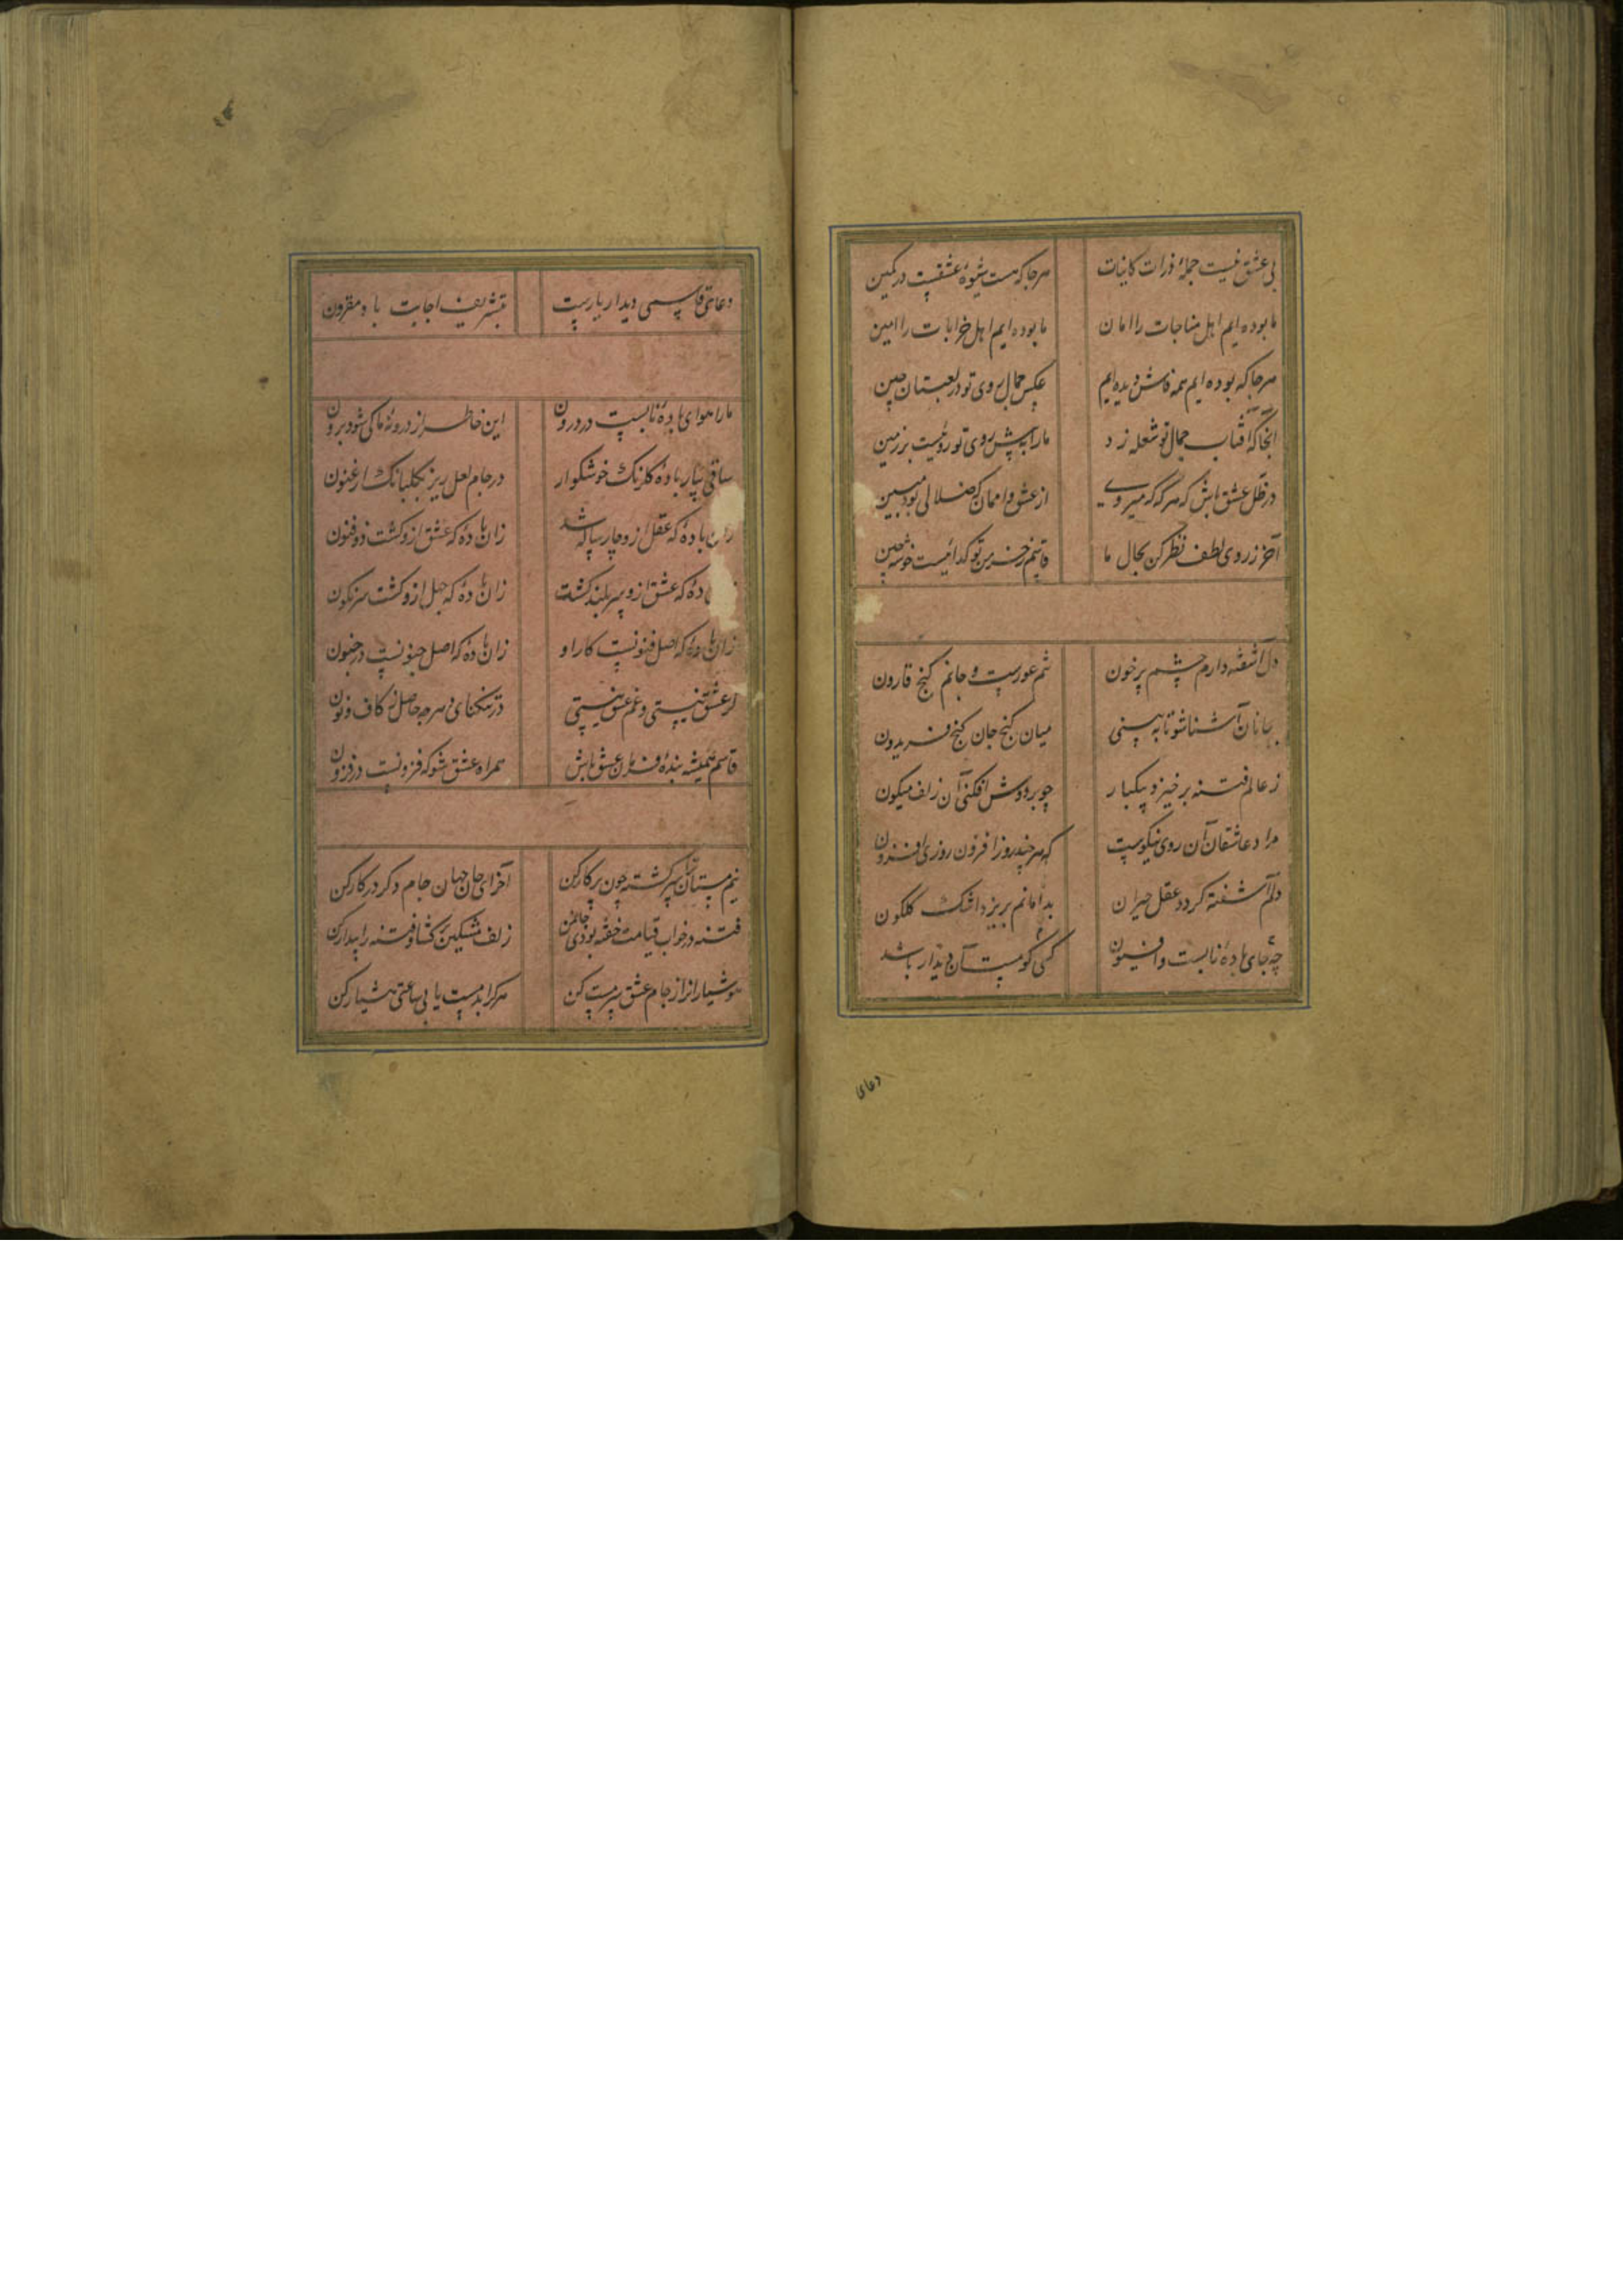 بی عشق نیست جملهٔ ذرات کاینات هرجا که هست شیوهٔ عشقست در کمین
ما بوده ایم اهل مناجات را امان ما بوده ایم اهل خرابات را امین
هرجا که بوده ایم همه فاش دیده ایم عکس جمال روی تو در لعبتان چین
آنجا که آفتاب جمال تو شعله زد ما را به پیش روی تو رویست بر زمین
در ظل عشق باش که هرگه که میروی از عشق وا ممان که ضلالی بود مبین
آخر ز روی لطف نظر کن بحال ما قاسم ز خرمن تو گداییست خوشه چین
دل آشفته دارم چشم پرخون تنم عورست و جانم گنج قارون
بجانان آشنا شو تا به بینی میان گنج جان گنج فریدون
ز عالم فتنه برخیزد بیکبار چو بر دوش افکنی آن زلف میگون
مرا دعا عاشقان آن روی نیکوست که هر چند روز افزون روزی افزون
دلم آشفته کردد عقل حیران بدامانم بریزد اشک گلگون
چه جای بادهٔ نابست و افیون کسی کو مست آن دیدار باشد
دعای
دعای قاسمی دیدار یارست بتشریف اجابت باد مقرون
ما را هوای بادهٔ نابست در درون این خاطر از درونهٔ ما کی شود برون
ساقی بیار بادهٔ گلرنگ خوشگوار در جام لعل ریز بگلبانگ ارغنون
زان بادهٔ که عقل ازو چارساله شد زان بادهٔ که عشق ازو گشت ذوفنون
دهٔ که عشق ازو سربلند گشت زان بادهٔ که جهل ازو گشت سرنگون
زان بادهٔ که اصل فنونست کار او زان بادهٔ که اصل جنونست در جنون
گر عشق نیستی و غم عشق نیستی در تنگنای دهر چه حاصل ز کاف و نون
قاسم همیشه بندهٔ فرمان عشق باش همراه عشق شو که فزونست در فزون
نیم مستان سرگشته چون پرگار کن آخر ای جان جهان جام دگر در کار کن
فتنه در خواب قیامت خفته بودی زلف مشکین برگشا و فتنه را بیدار کن
هوشیاران را ز جام عشق سرمست کن هر کرا بدمست یابی ساعتی هشیار کن